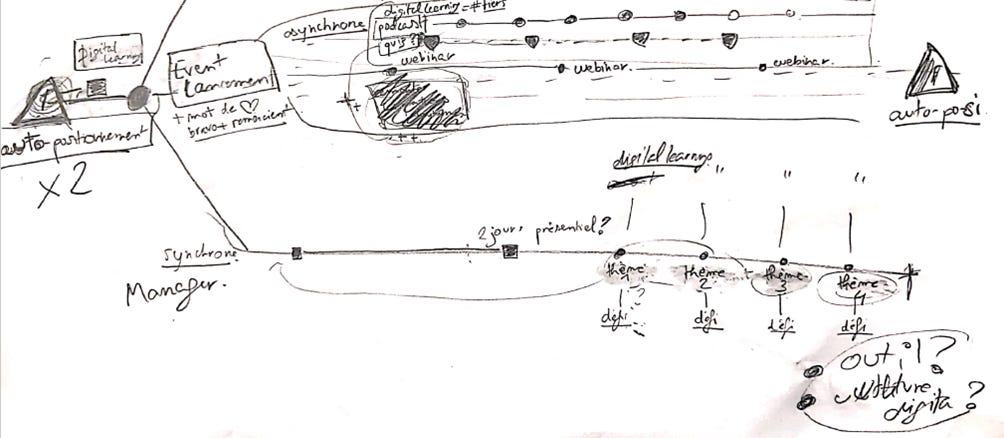 digital learning = # tiers
asynchrone
podcast
quiz?
webinar
webinar.
webinar.
Digital
learning
Event
Lancement
+ mot de ♡
bravo + remercient
1
auto-positionnement
x2
auto-posi
digital learning
"
"
"
2 jours présentiel?
synchrone
Manager.
thème
1
thème
2
thème
3
thème
4
?
défi
défi
défi
défi
outil?
digita?